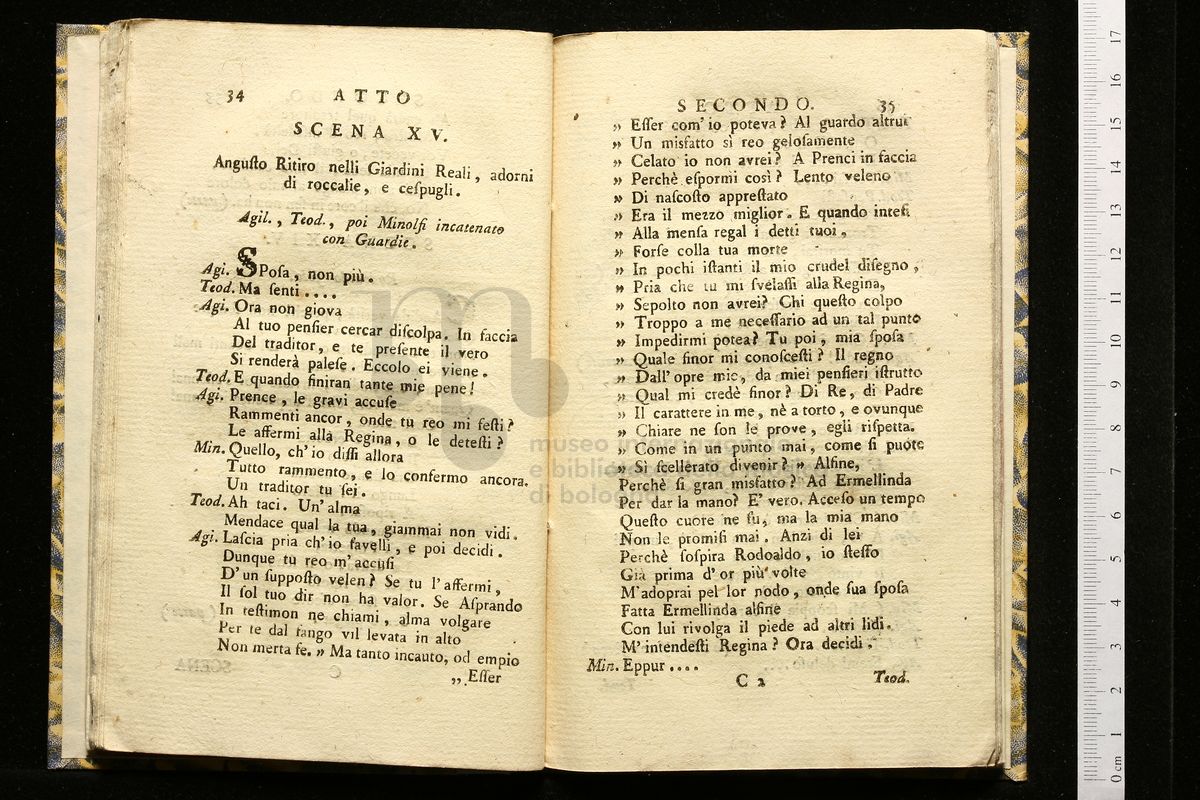 34 ATTO
SCENA XV.
Anguſto Ritiro nelli Giardini Reali, adorni
di roccalie, e ceſpugli.
Agil., Teod., poi Minolfi incatenato
con Guardie.
Agi. SPoſa, non più.
Teod. Ma ſenti....
Agi. Ora non giova
Al tuo penſier cercar diſcolpa. In faccia
Del traditor, e te preſente il vero
Si renderà paleſe. Eccolo ei viene.
Teod. E quando finiran tante mie pene!
Agi. Prence, le gravi accuſe
Rammenti ancor, onde tu reo mi feſti?
Le affermi alla Regina, o le deteſti?
Min. Quello, ch'io diſſi allora
Tutto rammento, e lo confermo ancora.
Un traditor tu ſei.
Teod. Ah taci. Un'alma
Mendace qual la tua, giammai non vidi.
Agi. Laſcia pria ch'io favelli, e poi decidi.
Dunque tu reo m'accuſi
D'un ſuppoſto velen? Se tu l'affermi,
Il ſol tuo dir non ha valor. Se Aſprando
In teſtimon ne chiami, alma volgare
Per te dal fango vil levata in alto
Non merta fe. „ Ma tanto incauto, od empio
„ Eſſer
SECONDO. 35
„ Eſſer com'io poteva? Al guardo altrui
„ Un misfatto sì reo geloſamente
„ Celato io non avrei? A Prenci in faccia
„ Perchè eſpormi così? Lento veleno
„ Di naſcoſto appreſtato
„ Era il mezzo miglior. E quando inteſi
„ Alla menſa regal i detti tuoi,
„ Forſe colla tua morte
„ In pochi iſtanti il mio crudel diſegno,
„ Pria che tu mi ſvelaſſi alla Regina,
„ Sepolto non avrei? Chi queſto colpo
„ Troppo a me neceſſario ad un tal punto
„ Impedirmi potea? Tu poi, mia ſpoſa
„ Quale finor mi conoſceſti? Il regno
„ Dall'opre mie, da miei penſieri iſtrutto
„ Qual mi credè finor? Di Re, di Padre
„ Il carattere in me, nè a torto, e ovunque
„ Chiare ne ſon le prove, egli riſpetta.
„ Come in un punto mai, come ſi puote
„ Sì ſcellerato divenir? „ Alfine,
Perchè ſì gran misfatto? Ad Ermellinda
Per dar la mano? E' vero. Acceſo un tempo
Queſto cuore ne fu, ma la mia mano
Non le promiſi mai. Anzi di lei
Perchè ſoſpira Rodoaldo, io ſteſſo
Già prima d'or più volte
M'adoprai pel lor nodo, onde ſua ſpoſa
Fatta Ermellinda alfine
Con lui rivolga il piede ad altri lidi.
M'intendeſti Regina? Ora decidi.
Min. Eppur....
C 2 Teod.